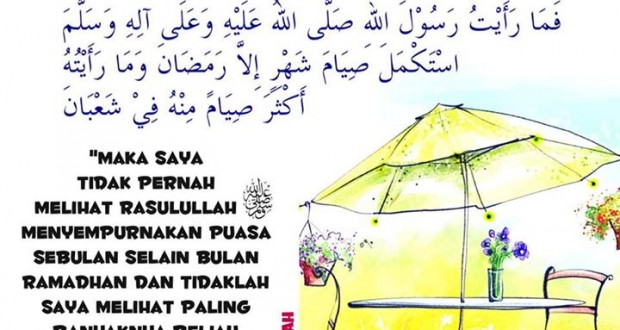 فَمَا رَأَيْتُ رَسُوْلَ اللهِ صَلَّى اللهُ عَلَيْهِ وَعَلَى آلِهِ وَسَلَّمَ
اسْتَكْمَلَ صِيَامَ شَهْرٍ إِلاَّ رَمَضَانَ وَمَا رَأَيْتُهُ
أَكْثَرَ صِيَامً مِنْهُ فِيْ شَعْبَانَ
"MAKA SAYA
TIDAK PERNAH
MELIHAT RASULULLAH ﷺ
MENYEMPURNAKAN PUASA
SEBULAN SELAIN BULAN
RAMADHAN DAN TIDAKLAH
SAYA MELIHAT PALING
BANYAKNYA BELIAU